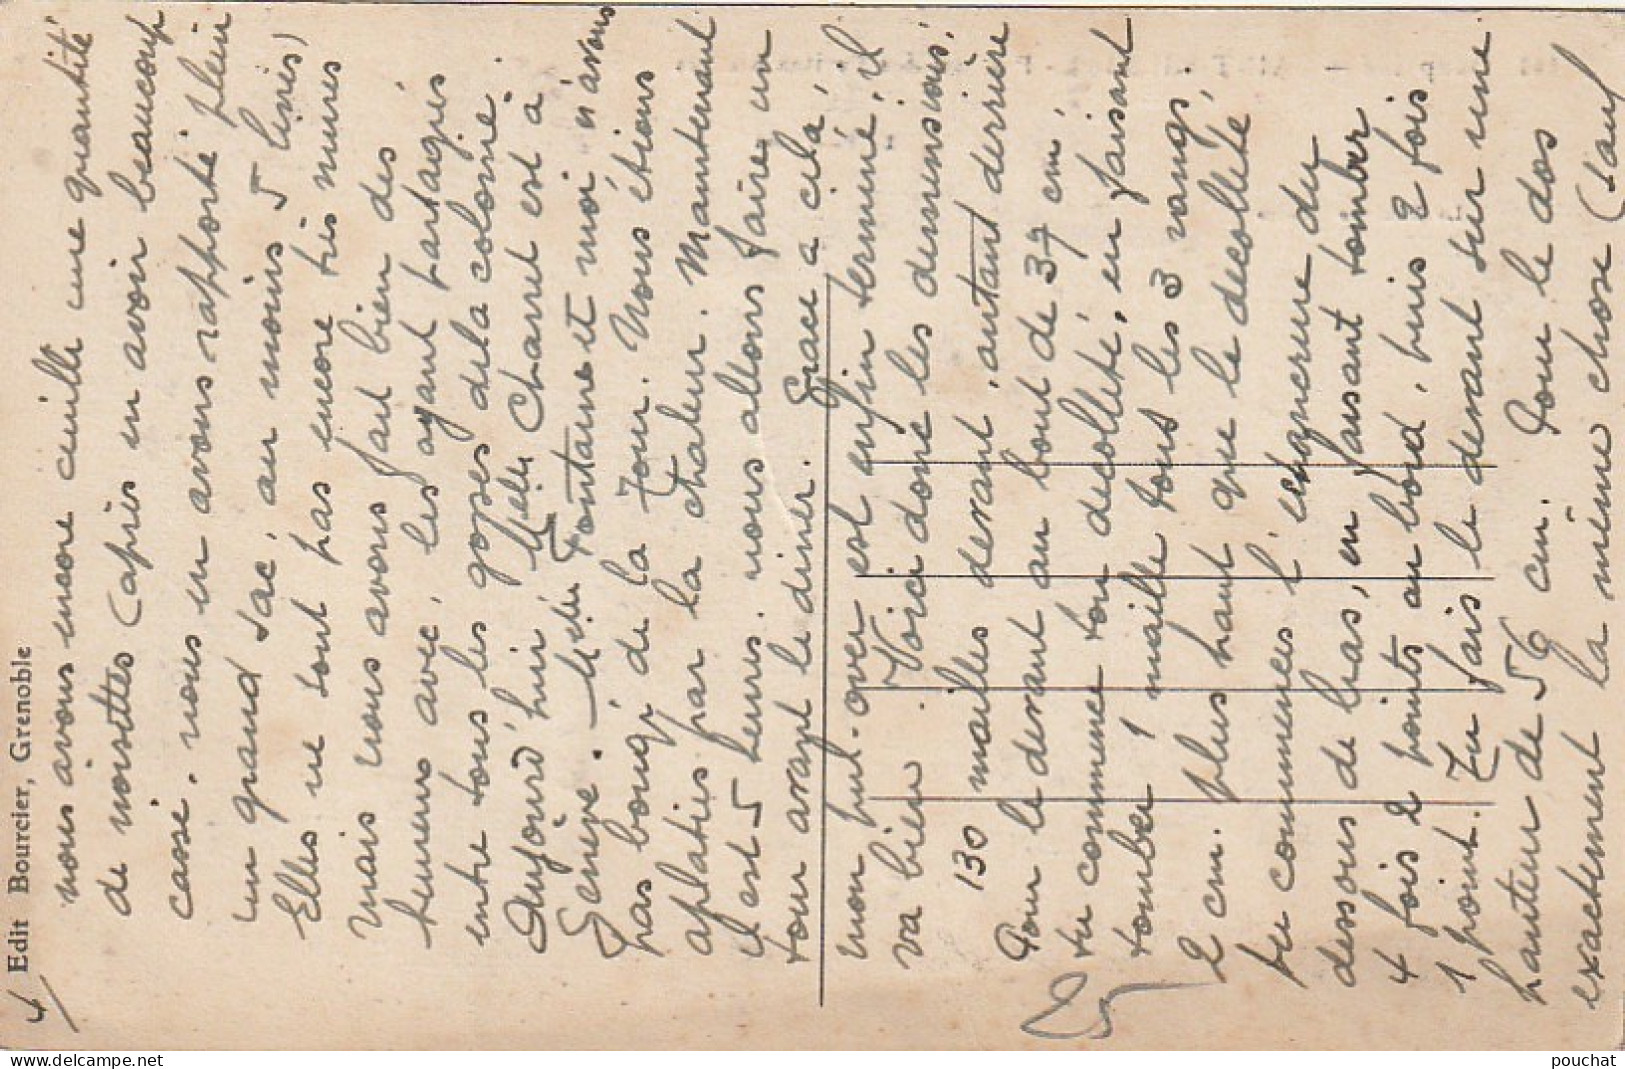 4
Edit Bourcier, Grenoble
nous avons encore cueilli une quantité
de noisettes (après en avoir beaucoup
cassé. nous en avons rapporté plein
un grand sac, au moins 5 livres)
Elles ne sont pas encore très mures
mais nous avons fait bien des
heureux avec, les ayant partagés
entre tous les gosses de la colonie.
Aujourd'hui Melle Charret est à
Genève. Melle Fontaine et moi n'avons
pas bougé de la Tour. Nous étions
aplaties par la chaleur. Maintenant
il est 5 heures. nous allons faire un
tour avant le diner. Grace a cela,
mon pull-over est enfin terminé, il
va bien. Voici donc les demensions:
130 mailles devant, autant derrière
Pour le devant au bout de 37 cm,
tu commence ton decolleté, en faisant
tomber 1 maille tous les 3 rangs.
2 cm. plus haut que le decolleté,
tu commences l'echancrure du
dessous de bras, en faisant tomber
4 fois 2 points au bord, puis 2 fois
1 point. Tu fais le devant sur une
hauteur de 56 cm. Pour le dos
exactement la même chose (sauf
www.delcampe.net
pouchat